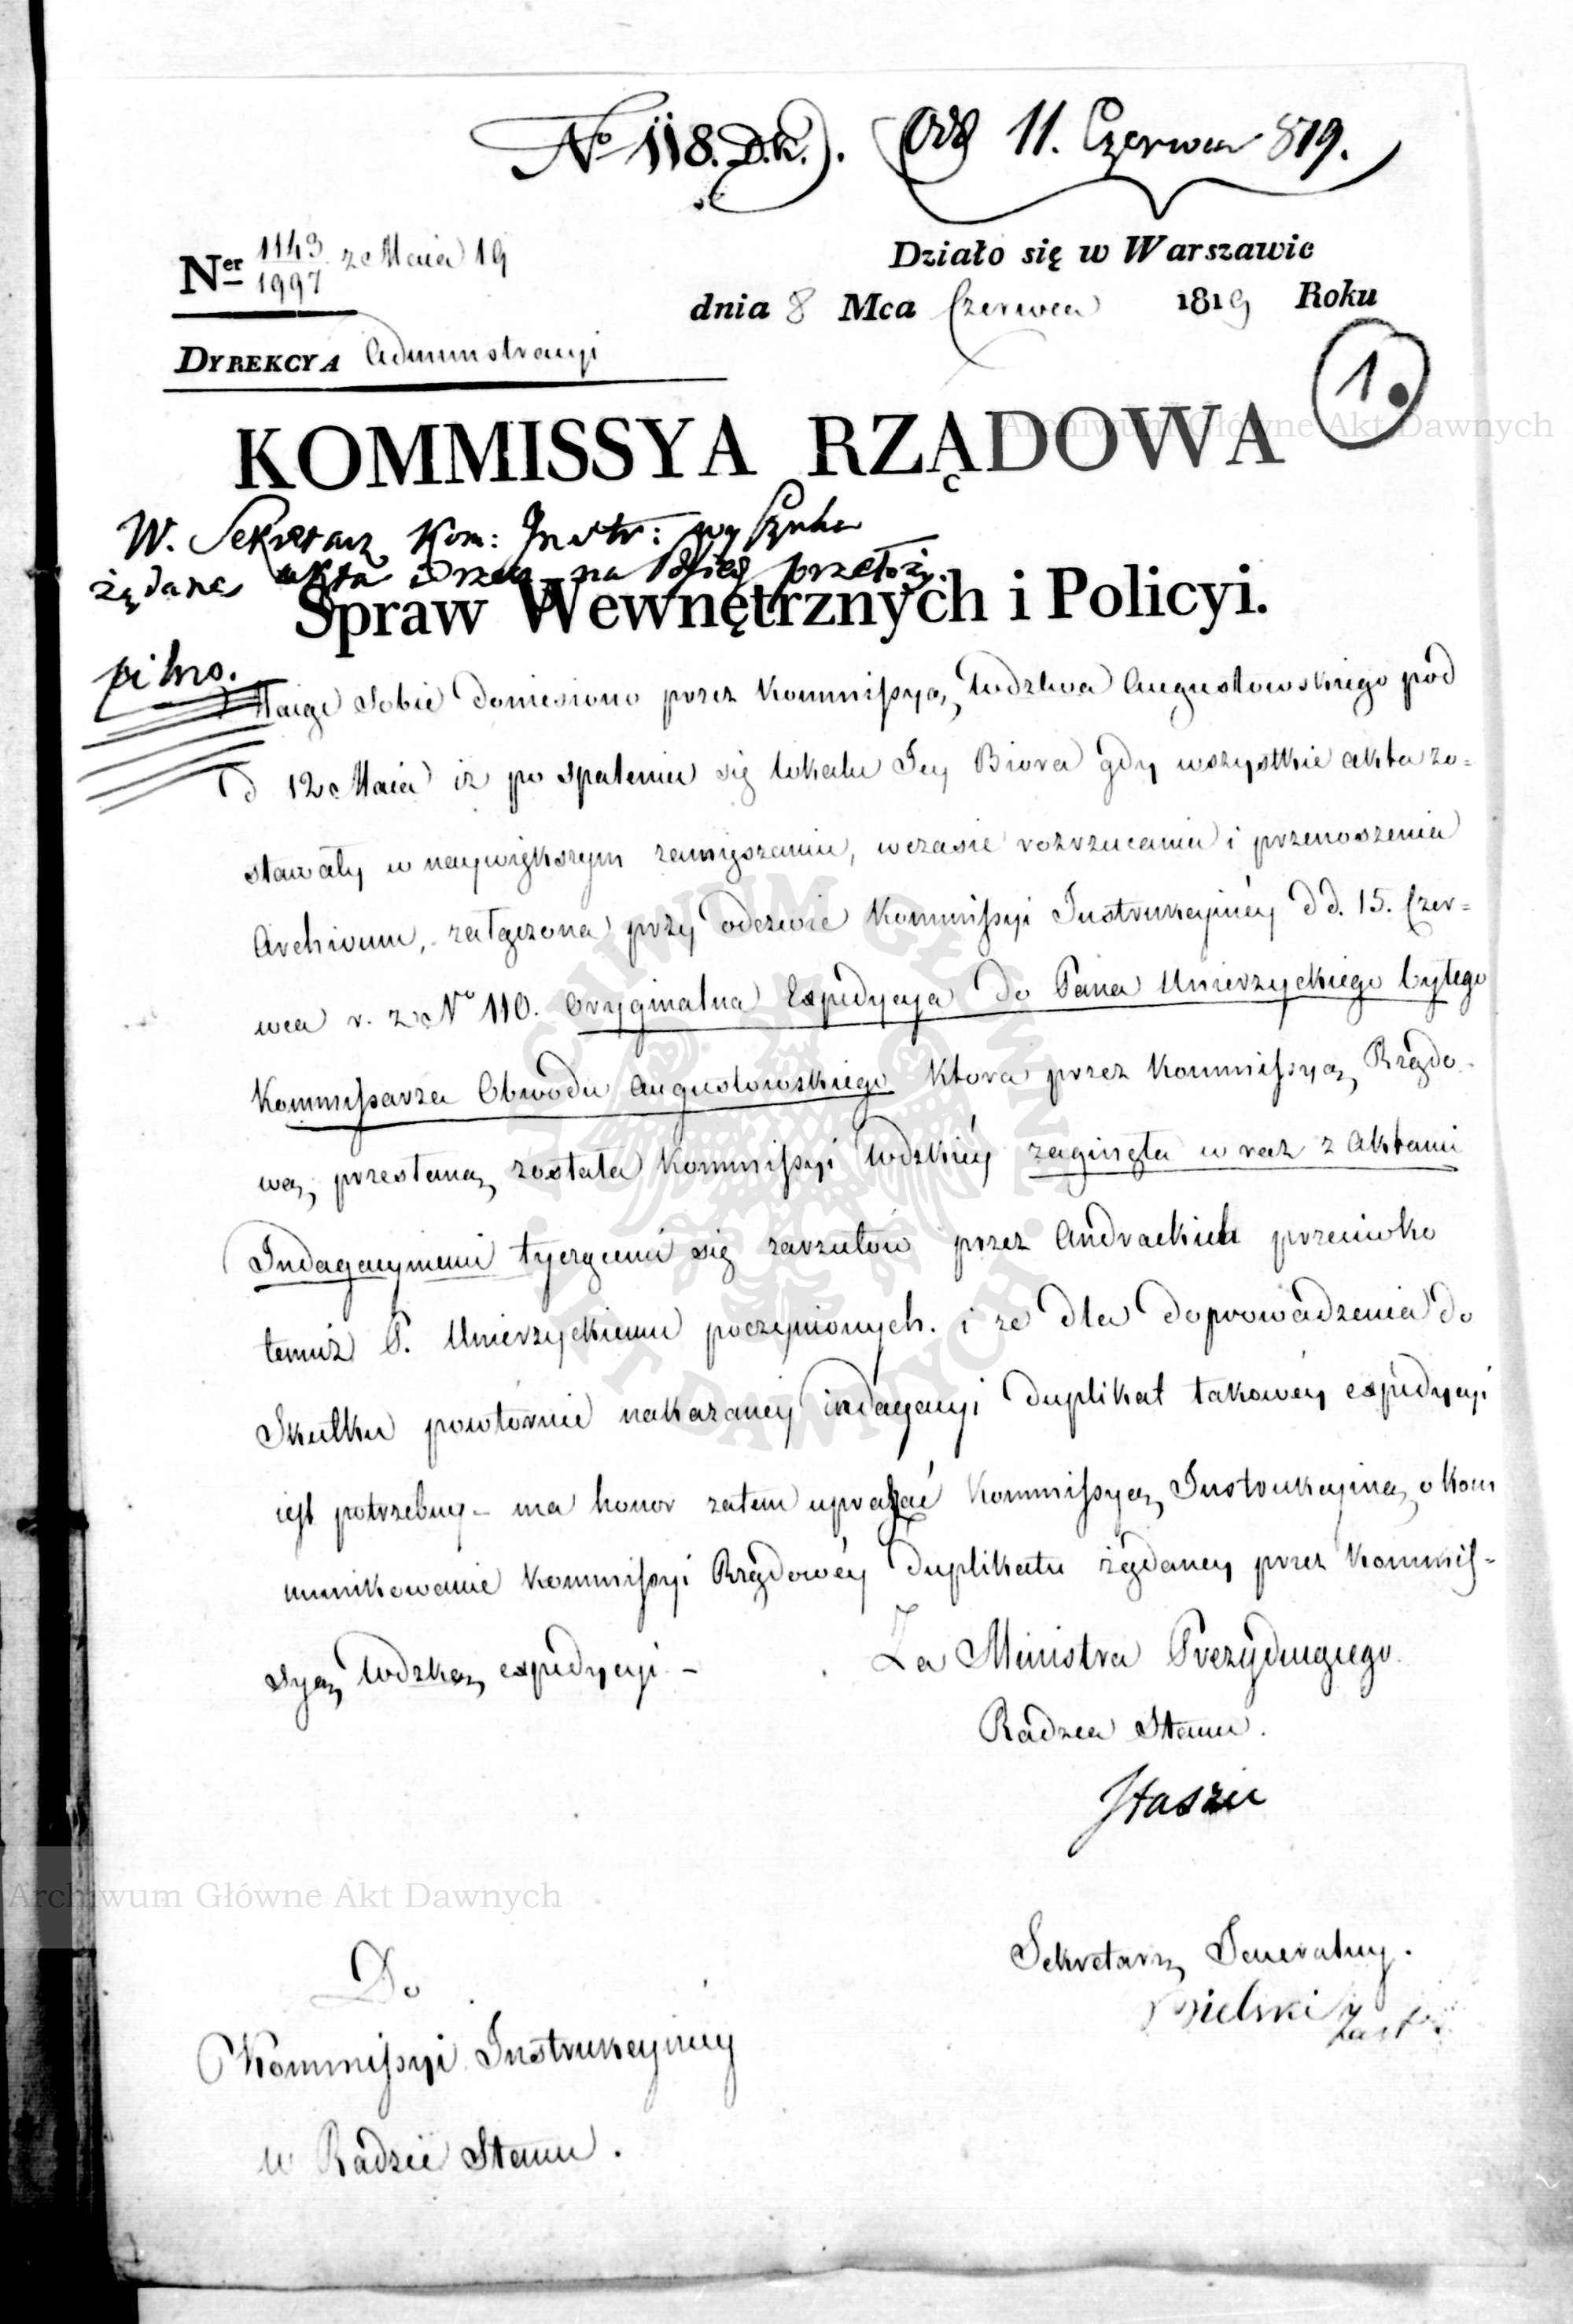 No 118. D.K. Odd 11. Czerwca 819.
Ner 1143/1997 z Maia 19
Działo się w Warszawie
dnia 8 Mca Czerwca 1819 Roku
DYREKCYA Administracyi
1.
KOMMISSYA RZĄDOWA
W. Sekretarz Kom: Instr: wyszuka
żądane akta i rzecz na Sessię przełoży.
Spraw Wewnętrznych i Policyi.
pilno.
Maiąc sobie doniesiono przez Kommissyą Wdztwa Augustowskiego pod
d 12 Maia iż po spaleniu się lokalu Jey Biora gdy wszystkie akta zo=
stawały w naywiększym zamięszaniu, w czasie rozrzucania i przenoszenia
Archiwum, załączona przy odezwie Kommissyi Instrukcyinéy dd. 15. Czer=
wca r. z No 110. Oryginalna Expedycya do Pana Umierzyckiego byłego
Kommissarza Obwodu Augustowskiego która przez Kommissyą Rządo-
wą przesłaną została Kommissyi Wdzkiéy zaginęła wraz z Aktami
Indagacyinemi tyczącemi się zarzutów przez Andrackich przeciwko
temuż P. Umierzyckiemu poczynionych. i że dla doprowadzenia do
Skutku powtórnie nakazaney indagacyi duplikat takowéy expedycyi
iest potrzebny - ma honor zatem upraszać Kommissyą Instrukcyiną o kom
munikowanie Kommissyi Rządowéy duplikatu żądaney przez Kommis=
syą Wdzką expedycyi. -
Za Ministra Prezyduiącego
Radzca Stanu.
Staszic
Sekretarz Jeneralny.
Bielski Zast
Do
Kommissyi Instrukcyiney
w Radzie Stanu.
Archiwum Główne Akt Dawnych
Archiwum Główne Akt Dawnych
ARCHIWUM GŁÓWNE AKT DAWNYCH